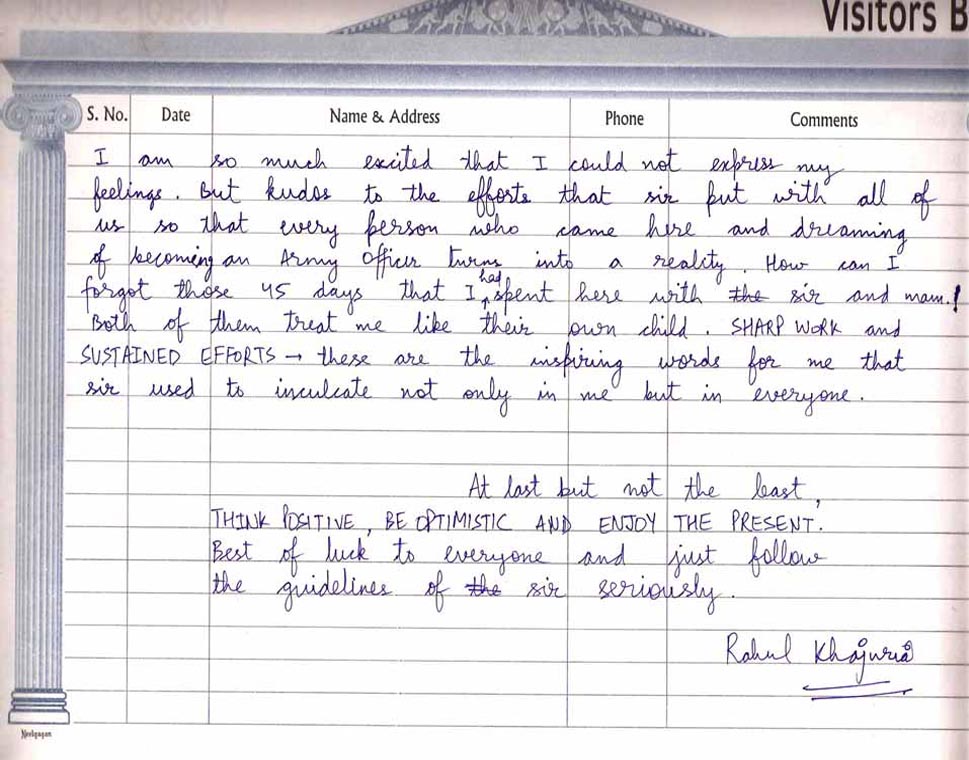 Visitors B
S. No. Date Name & Address Phone Comments
I am so much excited that I could not express my
feelings. But kudos to the efforts that sir put with all of
us so that every person who came here and dreaming
of becoming an Army Officer turns into a reality. How can I
forgot those 45 days that I had spent here with the sir and mam.!
Both of them treat me like their own child. SHARP WORK and
SUSTAINED EFFORTS → these are the inspiring words for me that
sir used to inculcate not only in me but in everyone.
At last but not the least,
THINK POSITIVE, BE OPTIMISTIC AND ENJOY THE PRESENT.
Best of luck to everyone and just follow
the guidelines of the sir seriously.
Rahul Khajuria
Neelgagan